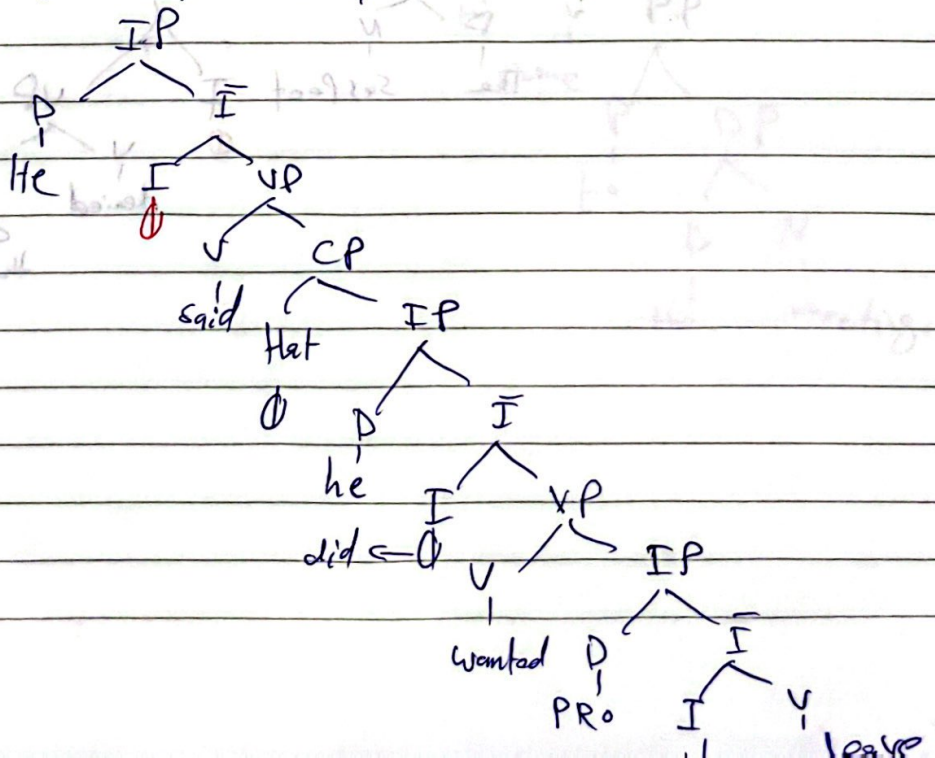 IP
D Ī
He I VP
∅ V CP
said that IP
∅ D Ī
he I VP
did ← ∅ V IP
wanted D Ī
PRO I V
leave